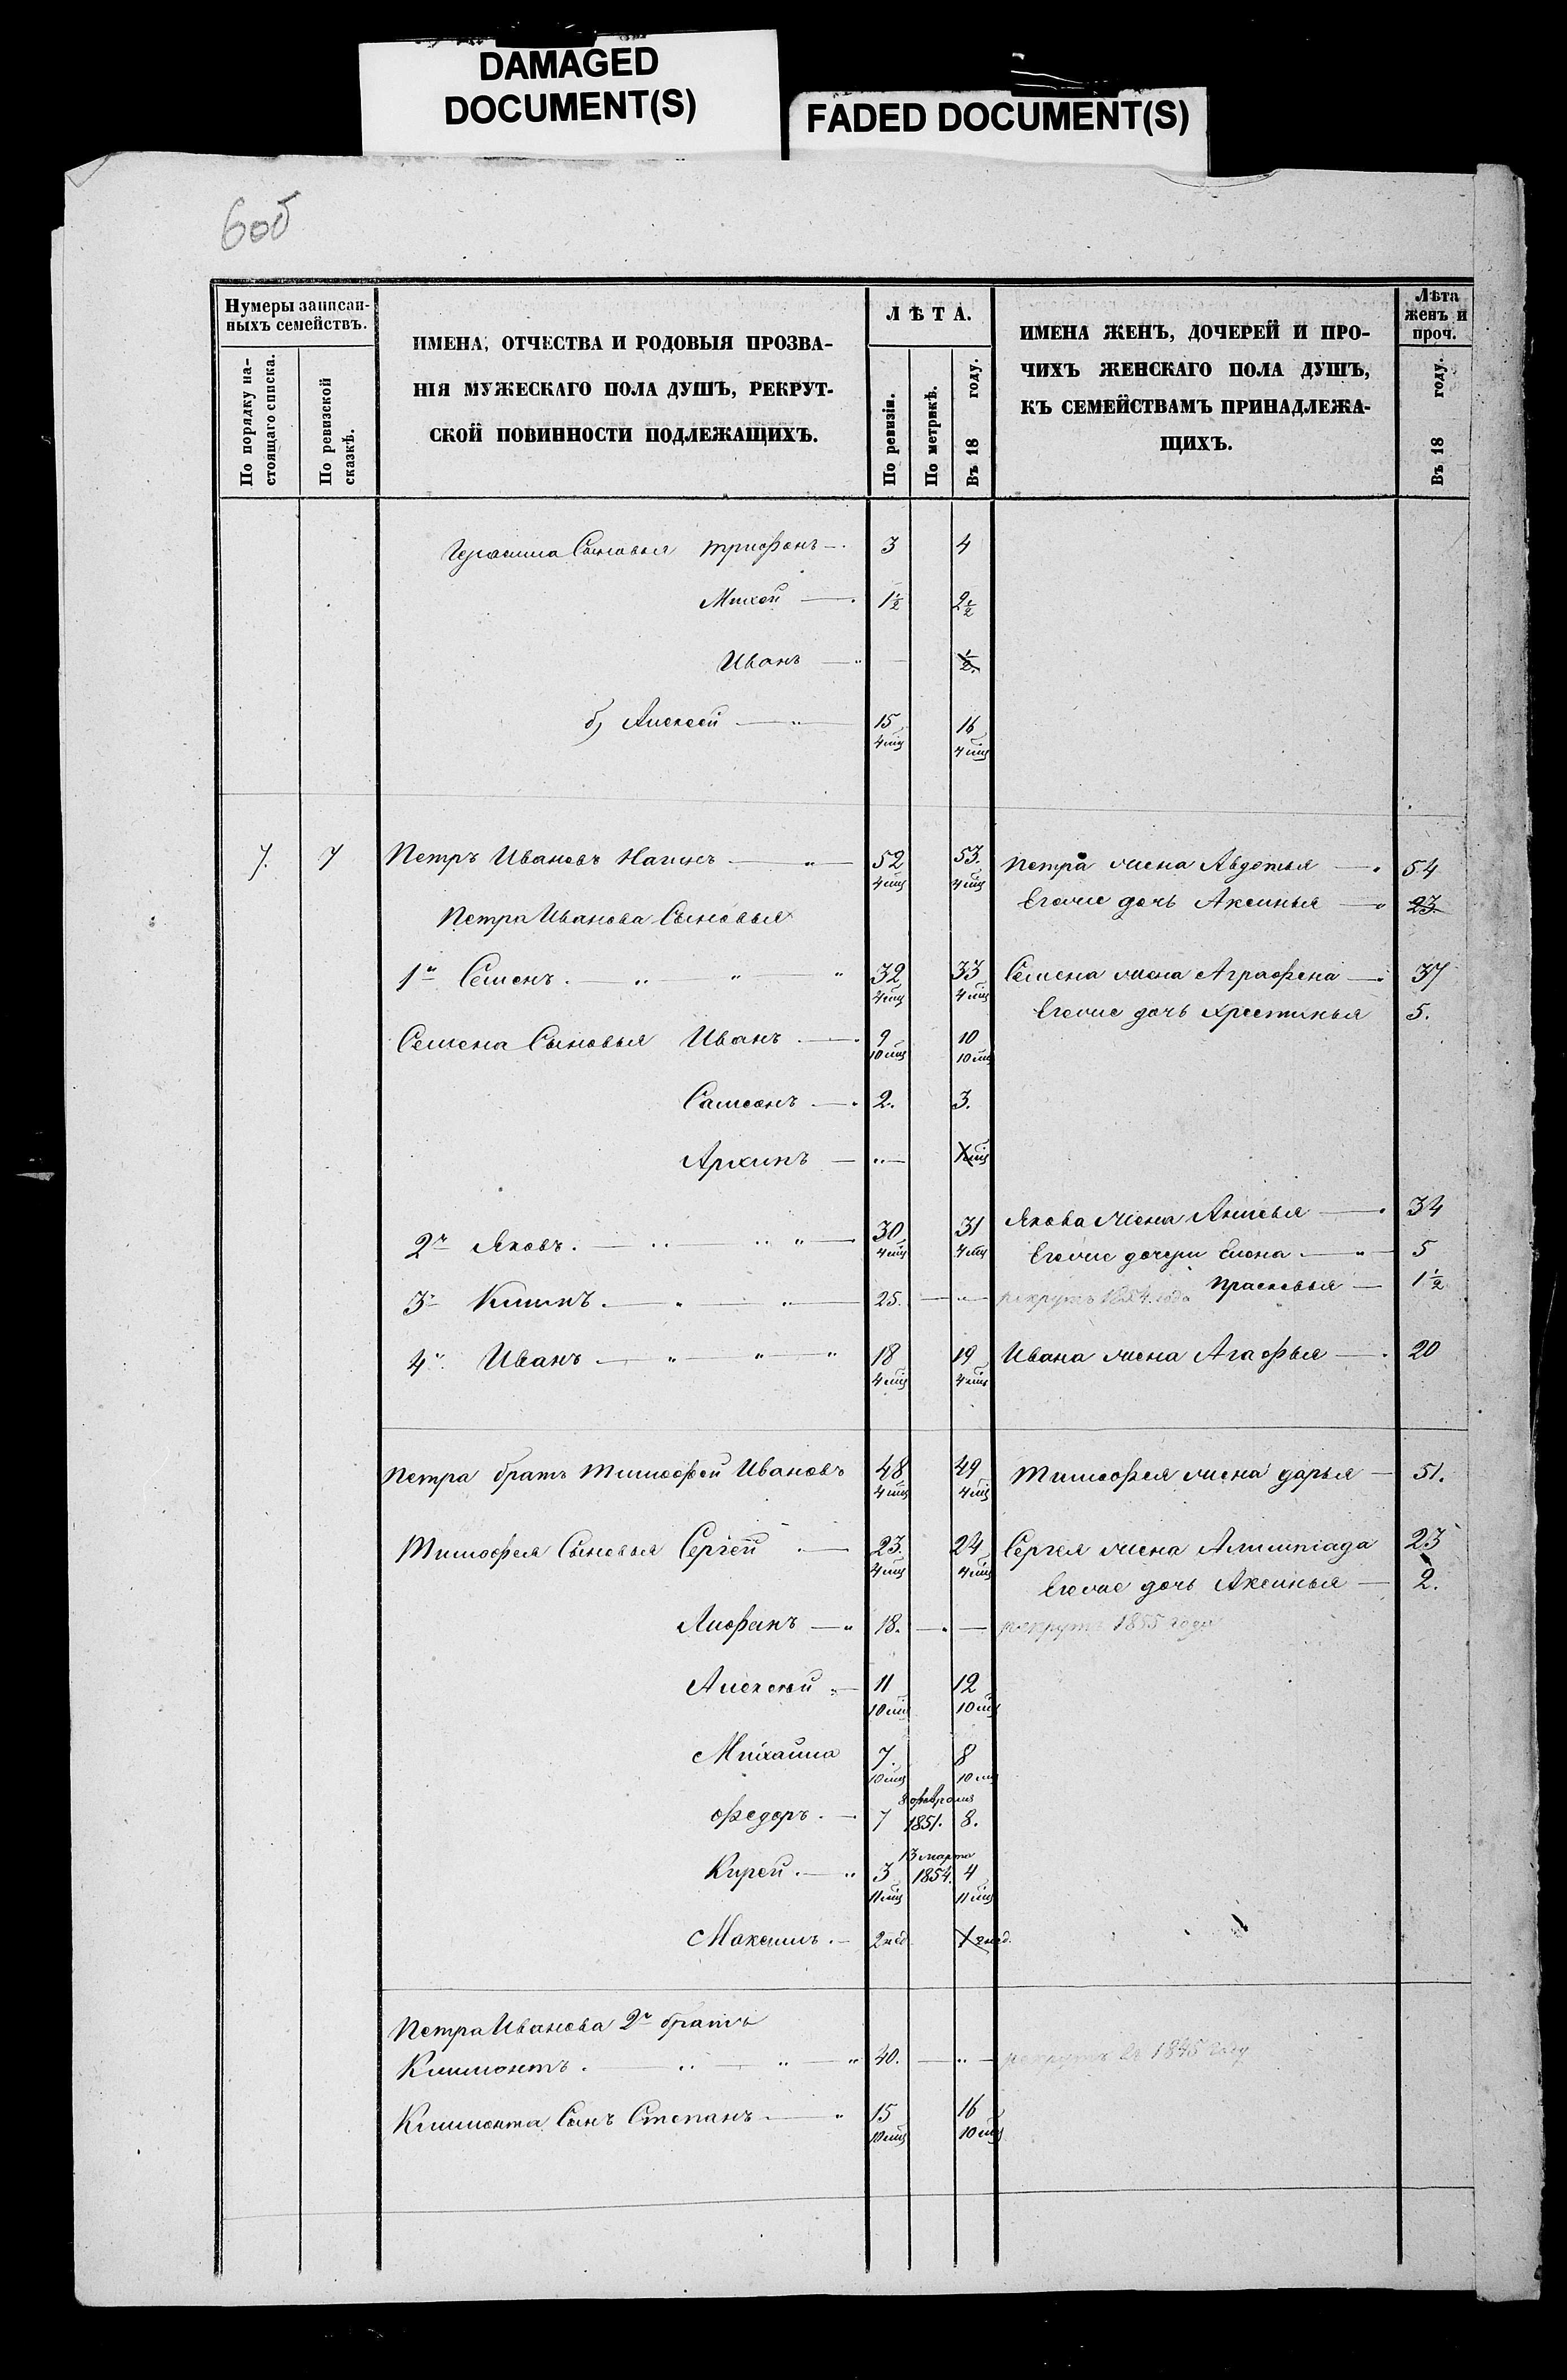 DAMAGED
DOCUMENT(S)
FADED DOCUMENT(S)
6об
Нумеры записан-
ныхъ семействъ.
По порядку на-
стоящаго списка.
По ревизской
сказкѣ.
ИМЕНА, ОТЧЕСТВА И РОДОВЫЯ ПРОЗВА-
НІЯ МУЖЕСКАГО ПОЛА ДУШЪ, РЕКРУТ-
СКОЙ ПОВИННОСТИ ПОДЛЕЖАЩИХЪ.
ЛѢТА.
По ревизіи.
По метрикѣ.
Въ 18 году.
ИМЕНА ЖЕНЪ, ДОЧЕРЕЙ И ПРО-
ЧИХЪ ЖЕНСКАГО ПОЛА ДУШЪ,
КЪ СЕМЕЙСТВАМЪ ПРИНАДЛЕЖА-
ЩИХЪ.
Лѣта
женъ и
проч.
Въ 18 году.
Герасима Сыновья Трифонъ 3 4
Михей 1½ 2½
Иванъ ½
б) Алексей 15 4 мѣс 16 4 мѣс
7. 7 Петръ Ивановъ 52 4 мѣс 53. 4 мѣс Петра жена Авдотья 54
Егоже дочь Аксинья 23.
Петра Иванова Сыновья
1й Семенъ. 32 4 мѣс 33 4 мѣс Семена жена Аграфена 37
Егоже дочь Хрестинья 5.
Семена Сыновья Иванъ 9 10 мѣс 10 10 мѣс
Самсонъ 2. 3.
Архипъ
2й Яковъ. 30 4 мѣс 31 4 мѣс Якова жена 34
Егоже дочери Елена 5
Прасковья 1½
3й Климъ. 25. рекрутъ 1854. года
4й. Иванъ 18 4 мѣс 19 4 мѣс Ивана жена Агафья 20
Петра братъ Тимофей Ивановъ 48 4 мѣс 49 4 мѣс Тимофея жена дарья 51.
Тимофея Сыновья Сергей 23. 4 мѣс 24 4 мѣс Сергея жена Алимпіада 23
Егоже дочь Аксинья 2.
18. рекрутъ 1855 года
Алексей 11 10 мѣс 12 10 мѣс
Михаила 7. 10 мѣс 8 10 мѣс
Федоръ. 7 8 февраля 1851. 8.
Кирей. 3 11 мѣс 13 марта 1854. 4 11 мѣс
Максимъ. 2 нед 2 нед.
Петра Иванова 2й братъ
Климонтъ. 40. рекрутъ въ 1845 году
Климонта Сынъ Степанъ 15 10 мѣс 16 10 мѣс